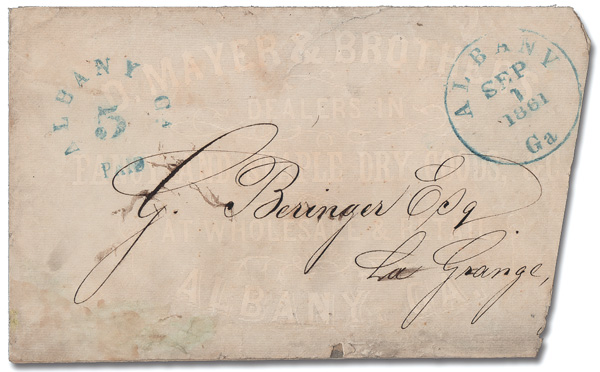 ALBANY GA
5
PAID
ALBANY
SEP
1
1861
Ga
D. MAYER & BROTHERS
DEALERS IN
DRY GOODS,
AT WHOLESALE & RETAIL
ALBANY, GA.
G. Beringer Esq
La Grange,